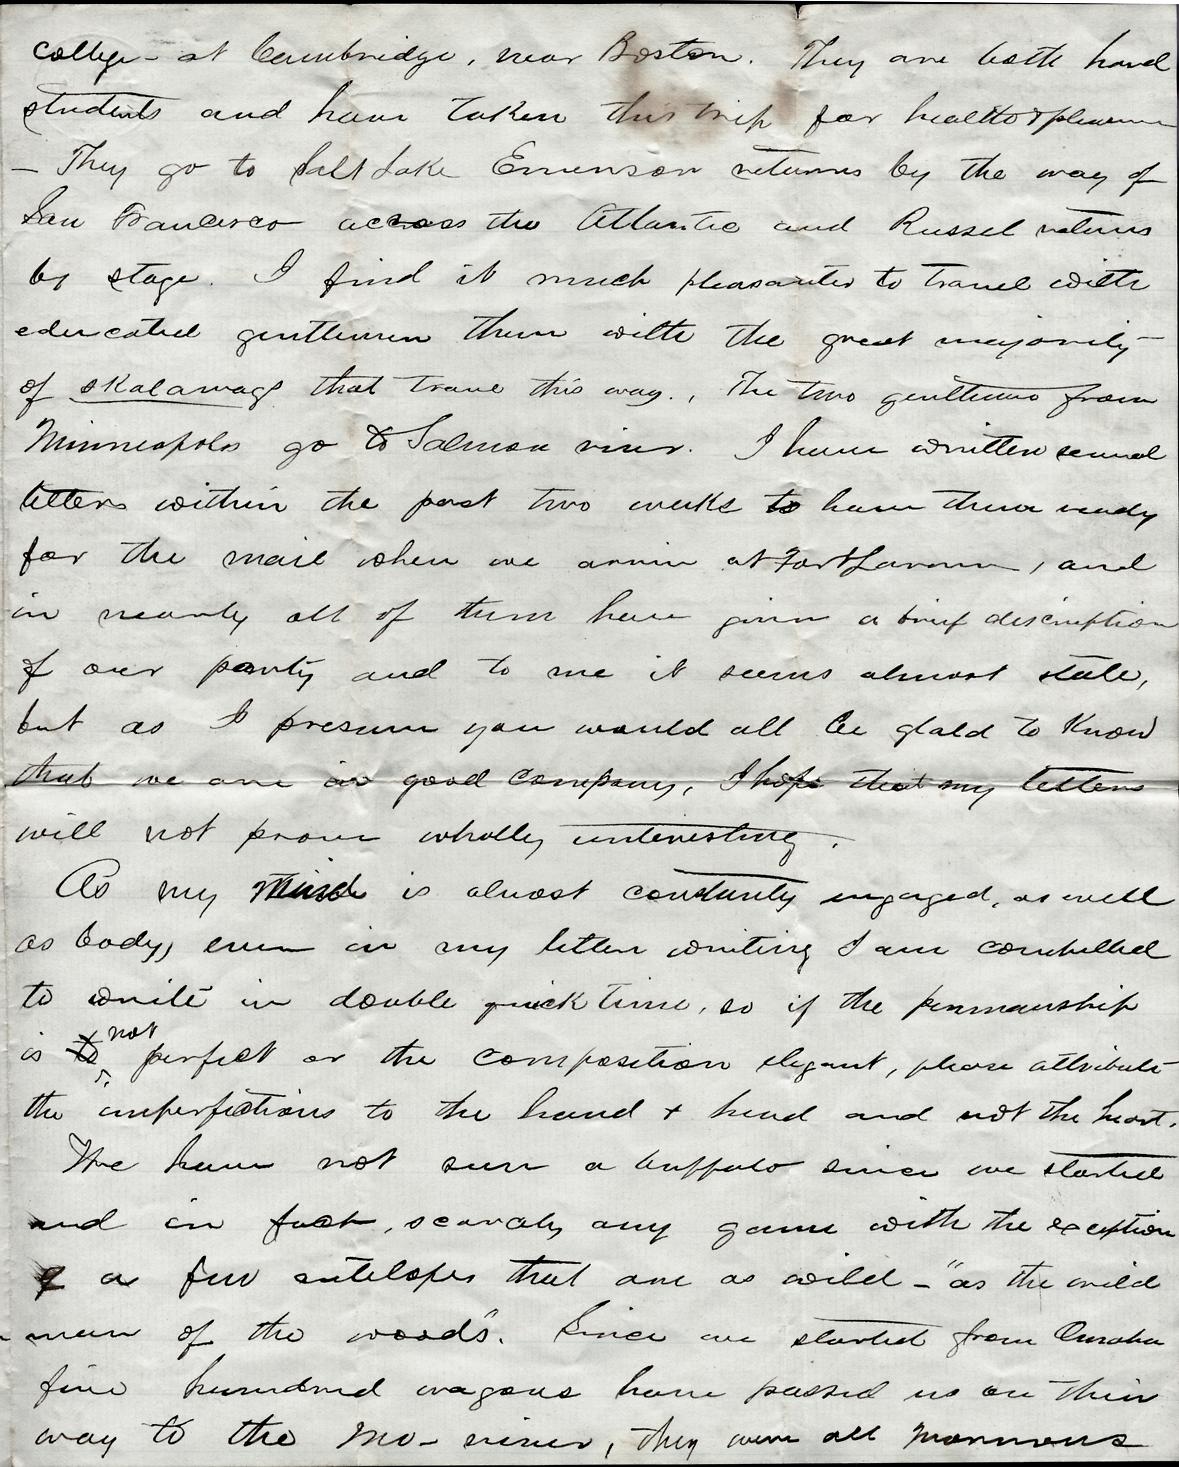 college - at Cambridge, near Boston. They are both hard
students and have taken this trip for health & pleasure
- They go to Salt Lake Emerson returns by the way of
San Francisco across the Atlantic and Russel returns
by stage. I find it much pleasanter to travel with
educated gentlemen than with the great majority
of skalawags that travel this way., The two gentlemen from
Minneapolis go to Salmon river. I have written several
letters within the past two weeks to have them ready
for the mail when we arrive at Fort Laramie, and
in nearly all of them have given a brief discription
of our party and to me it seems almost stale,
but as I presume you would all be glald to know
that we are in good company, I hope that my letters
will not prove wholly unteresting.
As my mind is almost constantly engaged, as well
as body, even in my letter writing I am compelled
to write in double quick time, so if the penmanship
is not perfect or the composition elegant, please attribute
the imperfections to the hand & head and not the heart.
We have not seen a buffalo since we started
and in fact, scarcely any game with the exception
of a few antelopes that are as wild - "as the wild
man of the woods". Since we started from Omaha
five hundred wagons have passed us on their
way to the Mo- river, they were all mormons